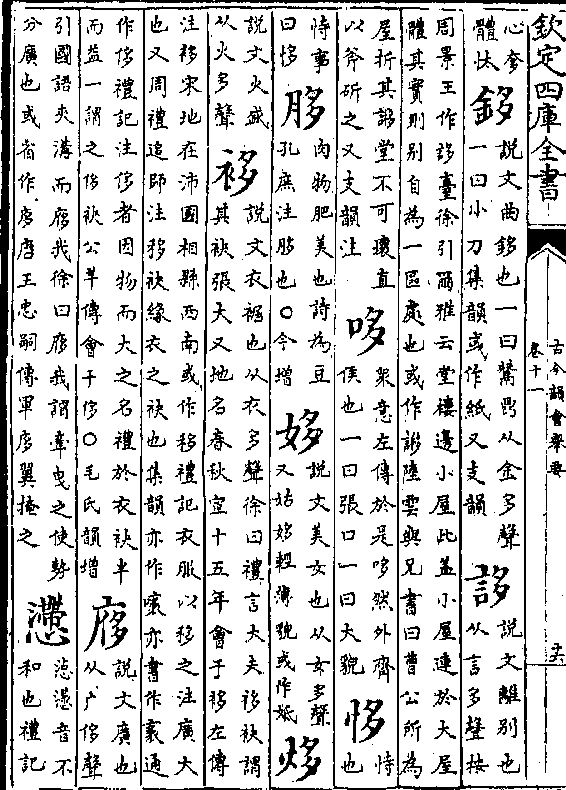 欽定四庫全書
古今韻會舉要
卷十一
十六
心奓
體忲
鉹
說文曲鉹也一曰鬵鼎从金多聲
一曰小刀集韻或作紙又支韻
誃
說文離別也
从言多聲按
周景王作誃臺徐引爾雅云堂樓邊小屋此蓋小屋連於大屋
體其實則别自為一區處也或作謻陸雲與兄書曰曹公所為
屋拆其謻堂不可壞直
以斧斫之又支韻注
哆
衆意左傳於是哆然外齊
侯也一曰張口一曰大貌
恀
恃
也
恃事
曰恀
䏧
肉物肥美也詩為豆
孔庶注䏧也○今增
姼
說文美女也从女多聲
又姑姼輕薄貌或作妷
㶴
說文火盛
从火多聲
袳
說文衣裾也从衣多聲徐曰禮言大夫移袂謂
其袂張大又地名春秋定十五年會于移左傳
注移宋地在沛國相縣西南或作移禮記衣服以移之注廣大
也又周禮追師注移袂緣衣之袂也集韻亦作㢋亦書作袲通
作侈禮記注侈者因物而大之名禮於衣袂半
而益一謂之侈袂公羊傳會于侈○毛氏韻增
㢋
說文廣也
从广侈聲
引國語夾溝而㢋我徐曰㢋我謂牽曳之使勢
分廣也或省作㢁唐王忠嗣傳軍㢁翼掩之
懘
惉懘音不
和也禮記